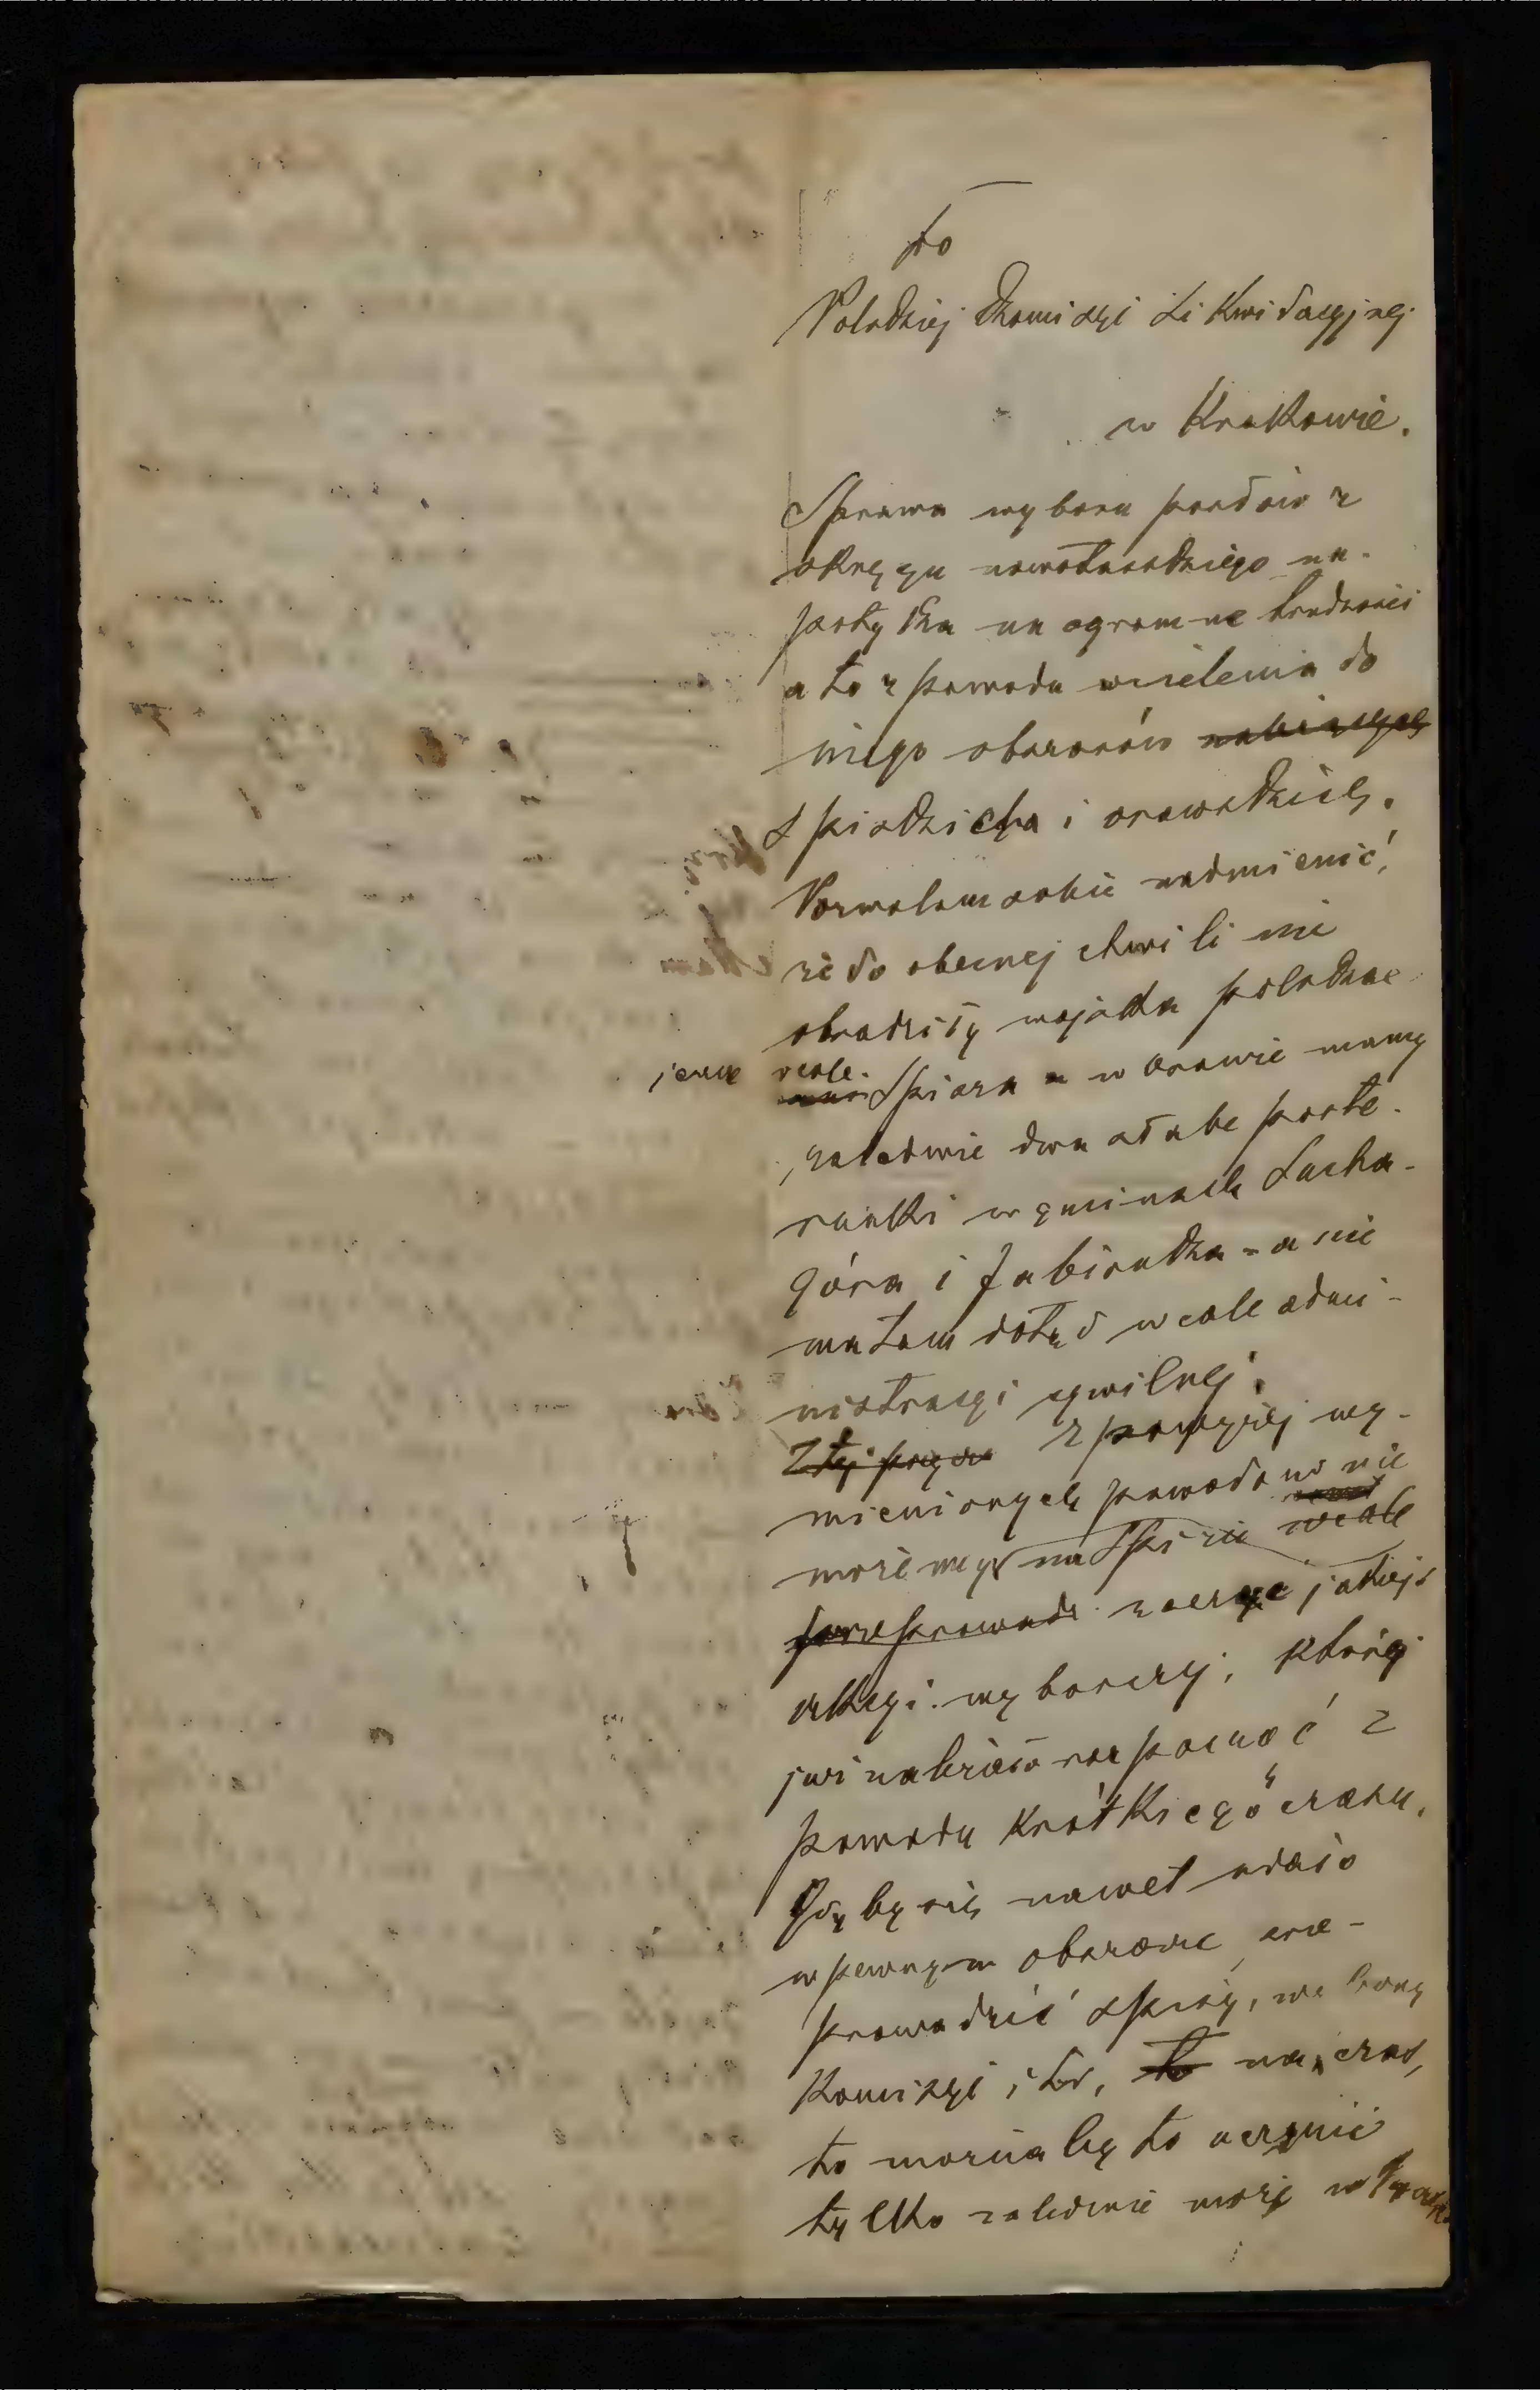 Do
Polskiej Komisyi Likwidacyjnej
w Krakowie.
Sprawa wyboru posłów z
okręgu nowotarskiego na-
potyka na ogromne trudności
a to z powodu wcielenia do
niego obszarów
spiskich i orawskich.
Pozwalam sobie nadmienić,
że do obecnej chwili nie
obsadziły wojska polskie
jeszcze wcale Spisza a w Orawie mamy
zaledwie dwa słabe poste-
runki w gminach Sucha-
góra i Jabłonka - a nie
ma tam dotąd wcale admi-
nistracyi cywilnej.
Z tej przycz z powyżej wy-
mienionych powodów nie
możemy na Spiżu wcale
przeprowadz zacząć jakiejś
akcyi wyborczej, którą
już należało rozpocząć z
powodu krótkiego czasu.
Gdyby się nawet udało
w pewnym obszarze
prowadzić spisy, wybory
Komisyi itd, to na czas,
to można by to uczynić
tylko zaledwie może w